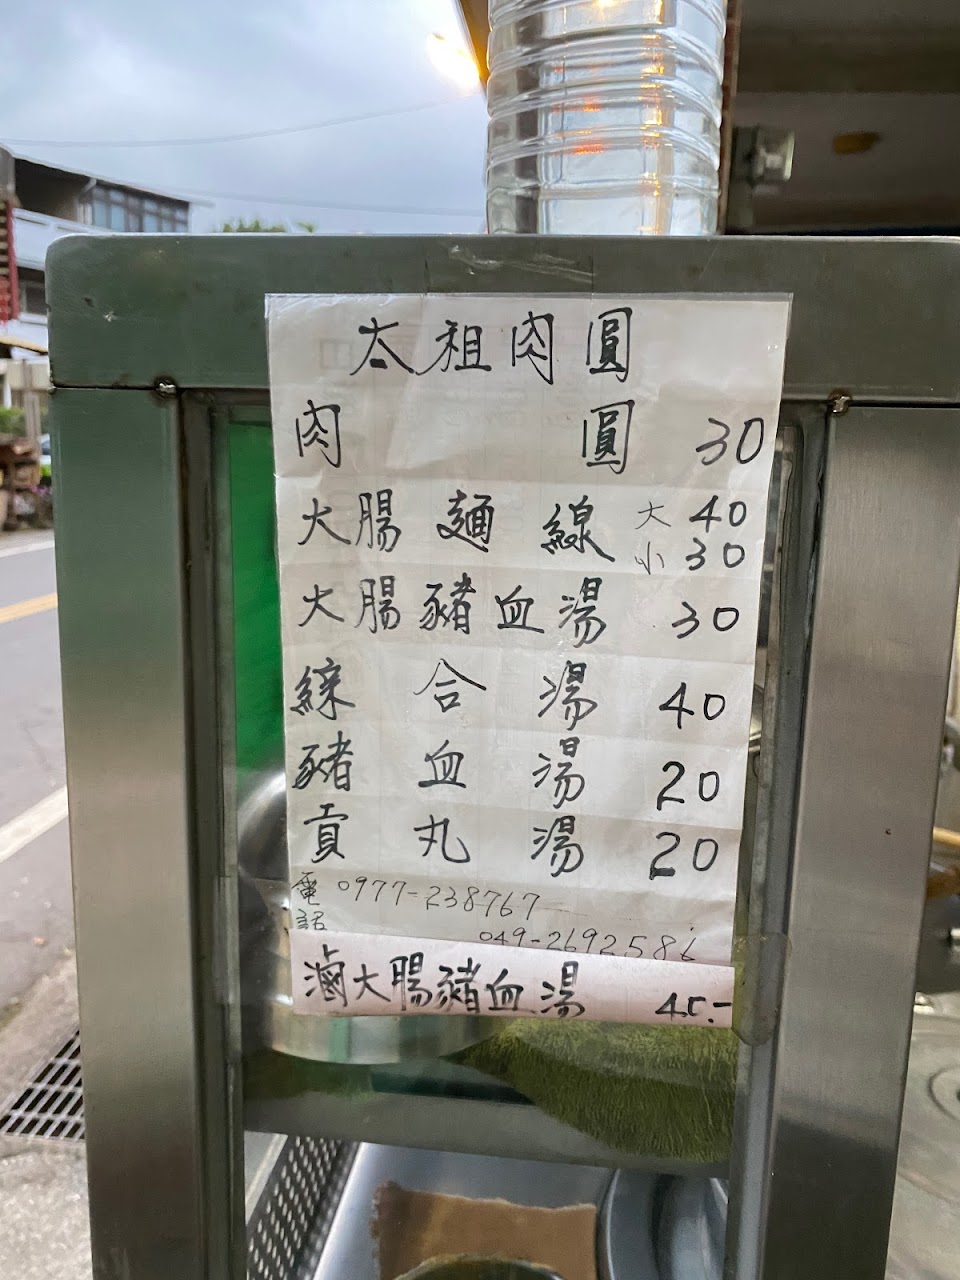 太祖肉圓
肉圓 30
大腸麵線 大 40
小 30
大腸豬血湯 30
綜合湯 40
豬血湯 20
貢丸湯 20
電話 0977-238767
049-2692586
滷大腸豬血湯 45.-